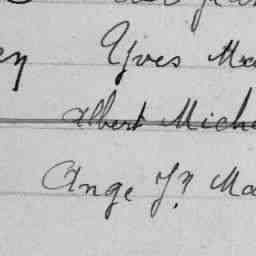 Yves Ma
Albert Mich
Ange J? Ma